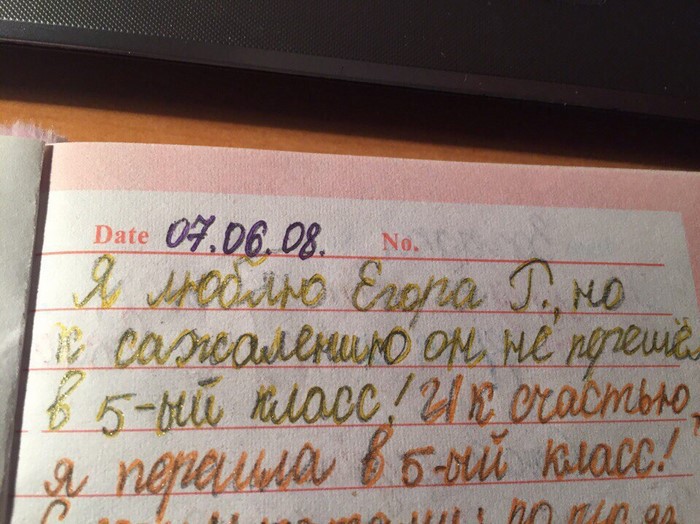 Date 07.06.08. No.
Я люблю Егора Г., но
к сажалению он не перешёл
в 5-ый класс! И к счастью,
я перешла в 5-ый класс!